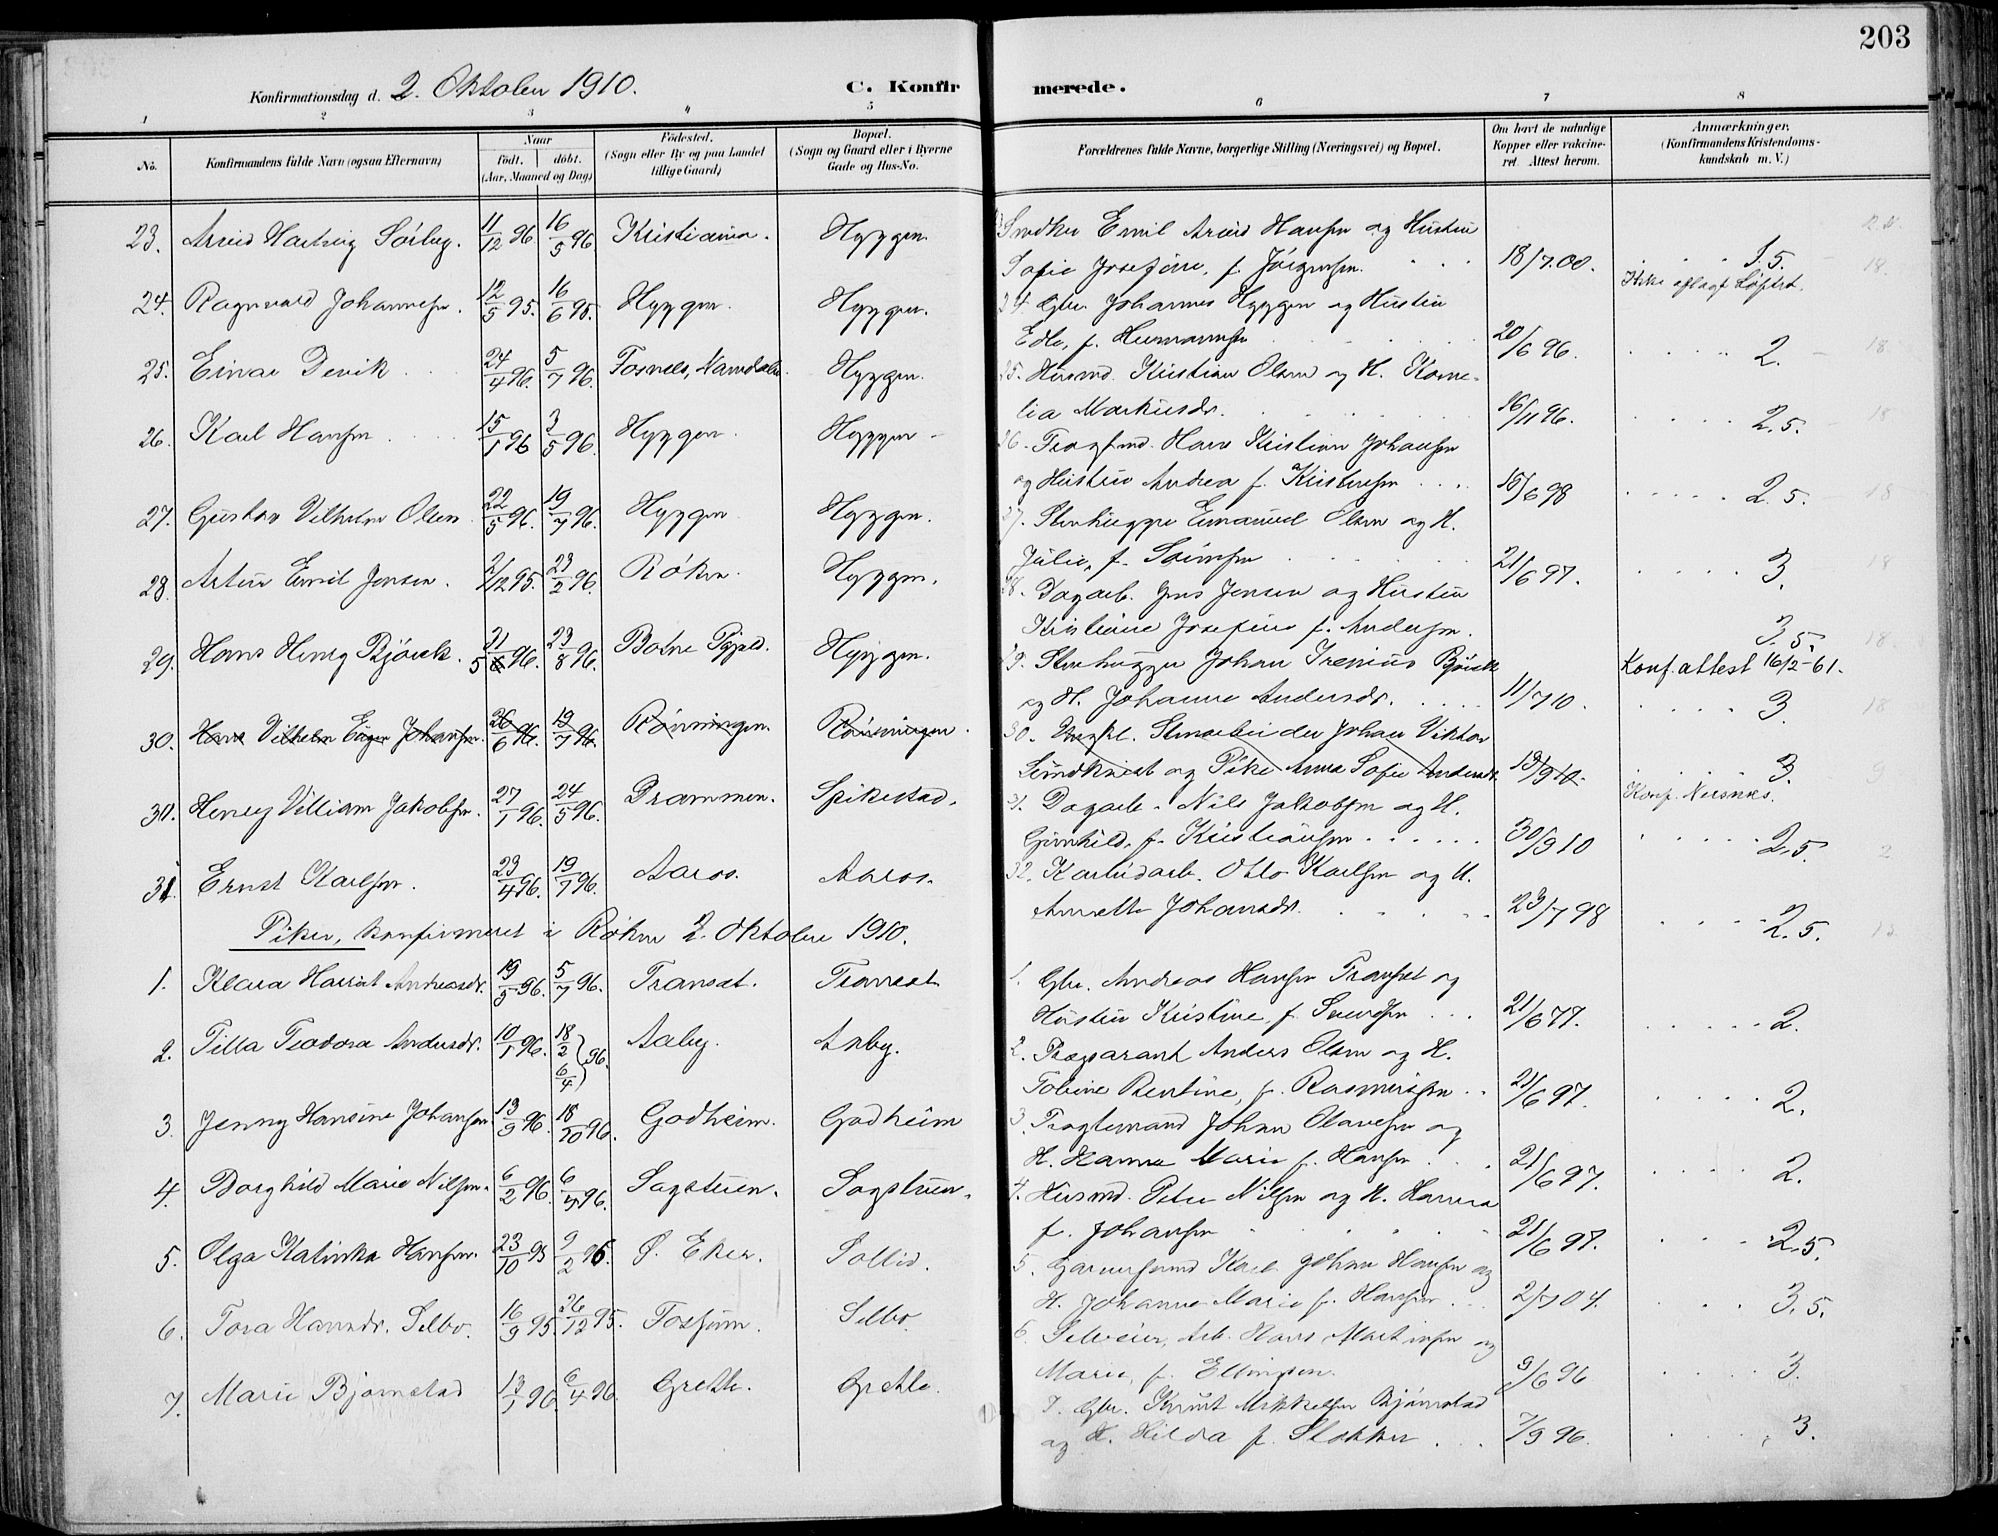 203
Konfirmationsdag d. 2. Oktober 1910.
C. Konfirmerede.
1 2 3 4 5 6 7 8
No.
Konfirmandens fulde Navn (ogsaa Efternavn)
Naar
født. døbt.
(Aar, Maaned og Dag)
Fødested.
(Sogn eller By og paa Landet
tillige Gaard)
Bopæl.
(Sogn og Gaard eller i Byerne
Gade og Hus-No.
Forældrenes fulde Navne, borgerlige Stilling (Næringsvei) og Bopæl.
Om havt de naturlige
Kopper eller vakcine-
ret. Attest herom.
Anmærkninger.
(Konfirmandens Kristendoms-
kundskab m. V.)
23. Arvid Hartvig Sørby. 11/12 96. 16/5 96. Kristiania. Hyggen.
Snedker Emil Arvid Hansen og Hustru
Sofie Josefine, f. Jörgensen. 18/7.00. 1.5.
Ikke aflagt Løftet.
24. Ragnvald Johannesen. 12/5 95. 16/6 95. Hyggen. Hyggen.
24. Gbr. Johannes Hyggen og Hustru
Edle, f. Hermansen 20/6 96. 2.
25. Einar Devik 24/4 96. 5/7 96. Fosnes, Namdalen. Hyggen.
25. Husmd. Kristian Olsen og H. Korne-
lia Markusdr. 16/11 96. 2.5.
26. Karl Hansen 15/1 96 3/5 96. Hyggen. Hyggen
26. Fragtmd. Hans Kristian Johansen
og Hustru Andrea f. Kristensen 15/6 98 2.5.
27. Gustav Vilhelm Olsen 22/5 96. 19/7 96. Hyggen Hyggen.
27. Stenhugger Emanuel Olsen og H.
Julie, f. Saamsen 21/6 97. 3.
28. Artur Emil Jensen. 2/12 95. 23/2 96. Røken. Hyggen.
28. Dagarb. Jens Jensen og Hustru
Kristiane Josefine f. Andersen. 3.5.
29. Hans Henry Bjørck. 21/5 96. 23/8 96. Botne Hyggen.
29. Stenhugger Johan Irenius Bjørck
og H. Johanne Andersdr. 11/7 10. 3.
Konf.attest 16/2-61.
30. Hans Vilhelm Eugen Johansen. 26/6 96. 19/7 96. Rønningen. Rønningen.
30. Ugift. Stenarbeider Johan Viktor
Lundkvist og Pike Anna Sofie Andersdr. 13/9 10. 3.
Konf. Nersnes.
30. Henry Villiam Jakobsen. 27/1 96. 24/5 96. Drammen. Spikestad.
31. Dagarb. Nils Jakobsen og H.
Gunhild, f. Kristiansen 30/9 10 2.5.
31. Ernst Karlsen. 23/4 96. 19/7 96. Aaros. Aaros.
32. Otto Karlsen og H.
Annette Johansdr. 23/7 98 2.5.
Piker, konfirmeret i Røken 2. Oktober 1910.
1. Klara Harriet Andreasdr. 19/5 96. 5/7 96. Transet. Transet
1. Gbr. Andreas Hansen Transet og
Hustru Kristine, f. Svendsen 21/6 77. 2.
2. Tilla Teodora Andersdr. 10/1 96. 18/2 6/4 } 96. Aaby. Aaby.
2. Præparant Anders Olsen og H.
Tobine Bentine, f. Rasmussen 21/6 97. 2.
3. Jenny Hansine Johansen 13/9 96. 18/10 96. Godheim. Godheim
3. Fragtemand Johan Olavesen og
H. Hanna Marie f. Hansen 21/6 97. 2.
4. Borghild Marie Nilsen. 6/2 96. 6/4 96. Sagstuen. Sagstuen.
4. Husmd. Peter Nilsen og H. Hanna
f. Johansen 21/6 97. 2.5.
5. Olga Katinka Hansen. 23/10 95 9/2 96. Ø. Eker. Sollid.
5. Karl Johan Hansen og
H. Johanne Marie f. Hansen 2/7 04. 3.5.
6. Tora Hansdr. Selbo. 16/9 95. 26/12 95. Fossum. Selbo.
6. Selveier, Arb. Hans Martinsen og
Marie, f. Ellingsen. 9/6 96 3.
7. Marie Bjørnstad 13/1 96. 6/4 96. Gretle. Gretle.
7. Gbr. Knut Mikkelsen Bjørnstad
og H. Hilda f. Stokker 7/9 96. 3.